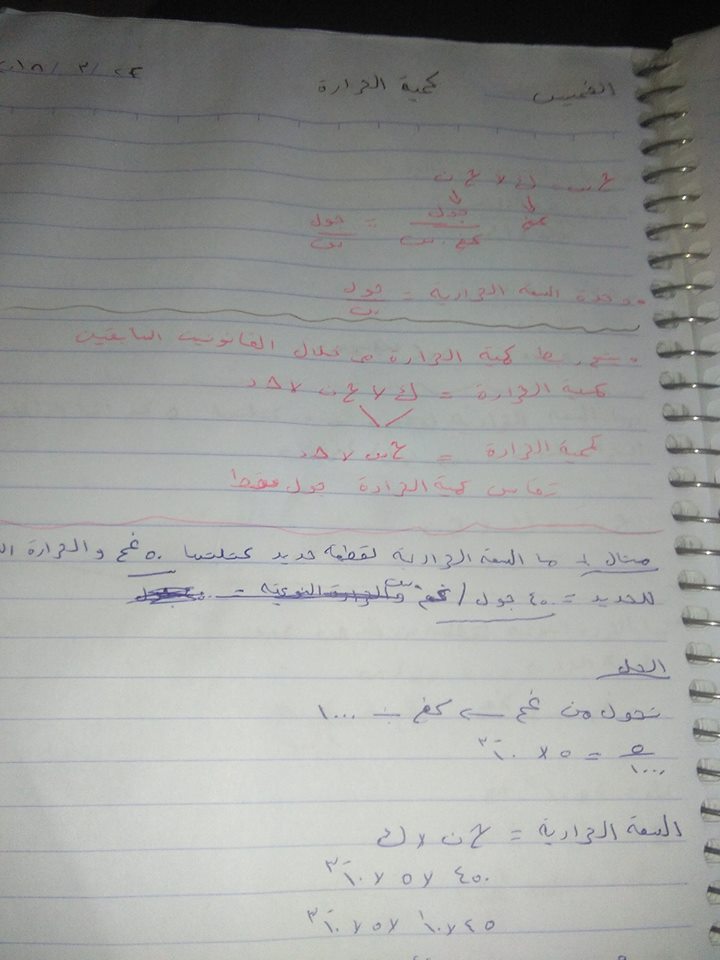 الخميس كمية الحرارة ٢٢ / ٣ /
ح س = ك × ح ن
كغم جول / كغم . س = جول / س
وحدة السعة الحرارية = جول / س
كمية الحرارة من خلال القانونين السابقين
كمية الحرارة = ك × ح ن × Δ د
كمية الحرارة = ح س × Δ د
تقاس كمية الحرارة جول فقط
مثال ١ ما السعة الحرارية لقطعة حديد كتلتها ٥٠ غم و الحرارة
للحديد = ٤٥٠ جول /
الحل
نحول من غم ← كغم ÷ ١٠٠٠
٥ / ١٠٠٠ = ٥ × ١٠⁻٣
السعة الحرارية = ح ن × ك
٤٥٠ × ٥ × ١٠⁻٣
٤٥ × ١٠ × ٥ × ١٠⁻٣